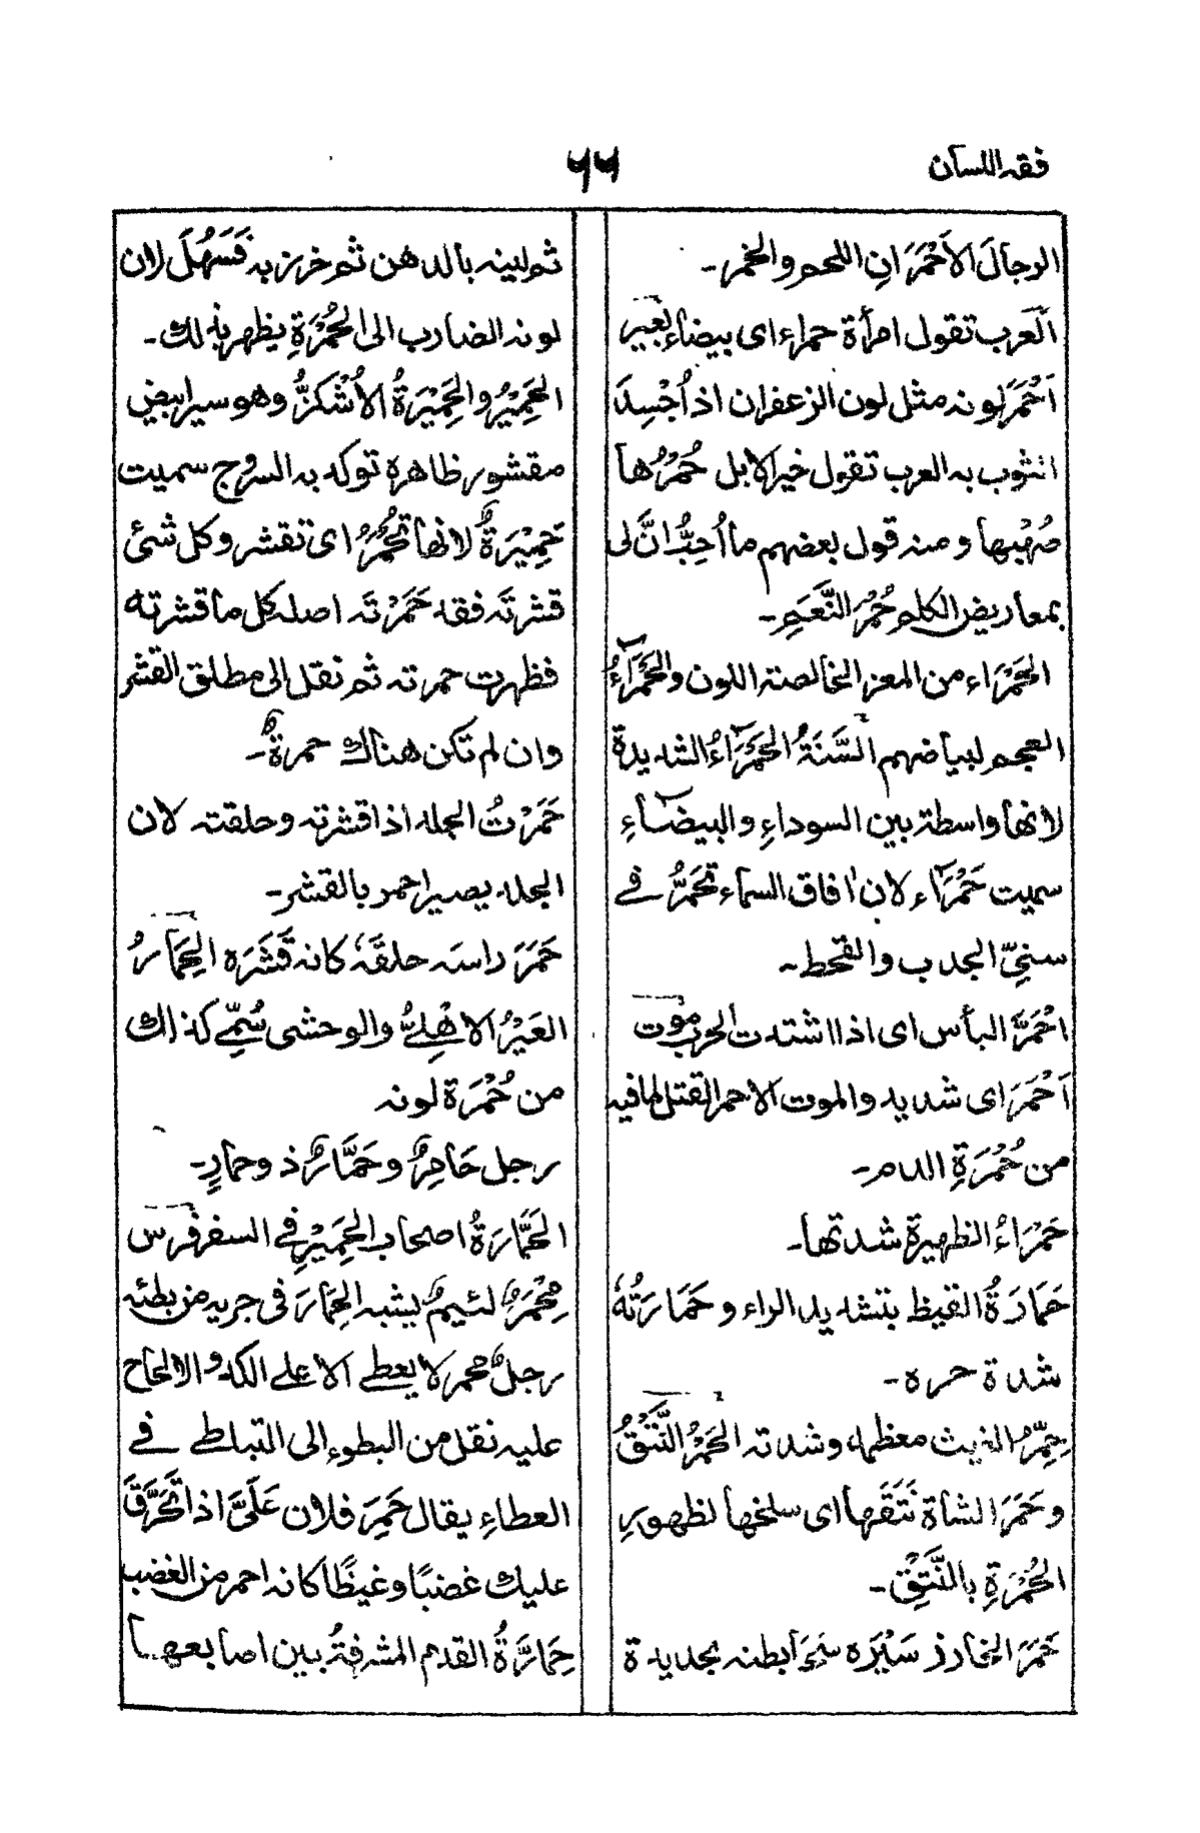 فقه اللسان
٦٦
الرجالَ الاَحْمَرَانِ اللحم والخمر۔
اَلعَرب تقول امرأة حمراء ای بیضاء بَعِیر
اَحْمَرُ لونه مثل لون الزعفران اذ اُجْسِدَ
الثوب به العرب تقول خیر الابل حُمْرُها
صُهْبها ومنه قول بعضهم ما اُحِبُّ انَّ لی
بمعاریض الکلم حُمْرُ النَّعَمِ۔
الحَمْرَاء من المعز الخالصة اللون والحَمْرَآءُ
العجم لبیاضهم اَلسَّنَةُ الحَمْرَاءُ الشدیدة
لانها واسطة بین السوداءِ والبیضآءِ
سمیت حَمْرَآء لان اٰفاق السماء تَحْمَرُّ فے
سنیِّ الجدب والقحط۔
احْمَرَّ البأس ای اذا اشتدت الحرب موت
اَحْمَرَ ای شدید والموت الاحمر القتل لما فیه
من حُمْرَةِ الدم۔
حَمْرَاءُ الظهیرة شدتها۔
حَمَارَةُ القیظ بتشدید الراء وحَمَارَتُهٗ
شدة حره۔
حِمِرُّ الغیث معظمه وشدته الحَمْرُ النَّتْقُ
وحَمَرَ الشاة نَتَقَها ای سلخها لظهورِ
الحُمْرَةِ بالنَّتْقِ۔
حَمَرَ الخارز سَیْرَه سَحَا بطنه بحدیدة
ثم لینه بالدهن ثم خرز به فَسَهُلَ لان
لونه الضارب الی الحُمْرَةِ یظهر بذلك۔
الحَمِیْرُ والحَمِیْرَةُ الاُشْکُزُّ وهو سیر ابیض
مقشور ظاهره توکد به السروج سمیت
حَمِیْرَةٌ لانها تُحْمَرُ ای تقشر وکل شئ
قشرتَه فقد حَمَرْتَه اصله کل ما قشرته
فظهرت حمرته ثم نقل الی مطلق القشر
وان لم تکن هناك حمرةٌ۔
حَمَرْتُ الجلد اذا قشرته وحلقته لان
الجلد یصیر احمر بالقشر۔
حَمَرَ راسَه حلقَهٗ کانه قَشَرَه الحِمَارُ
العَیْرُ الاهْلِےُّ والوحشی سُمِّے کذالك
من حُمْرَة لونه
رجل حَامِرٌ وحَمَّارٌ ذو حمارٍ۔
الحَمَّارَةُ اصحاب الحَمِیْرِ فے السفر فَرس
مِحْمَرٌ لئیمٌ یشبه الحِمَارَ فی جریه من بطئه
رجلٌ محمر لا یعطے الا علے الکد والالحاح
علیه نقل من البطوء الی التبلط فے
العطاءِ یقال حَمِرَ فلان عَلَیَّ اذا تَحَرَّقَ
علیك غضبًا وغیظًا کانه احمر من الغضب
حِمَارَّةُ القدم المشرفةُ بین اصابعها